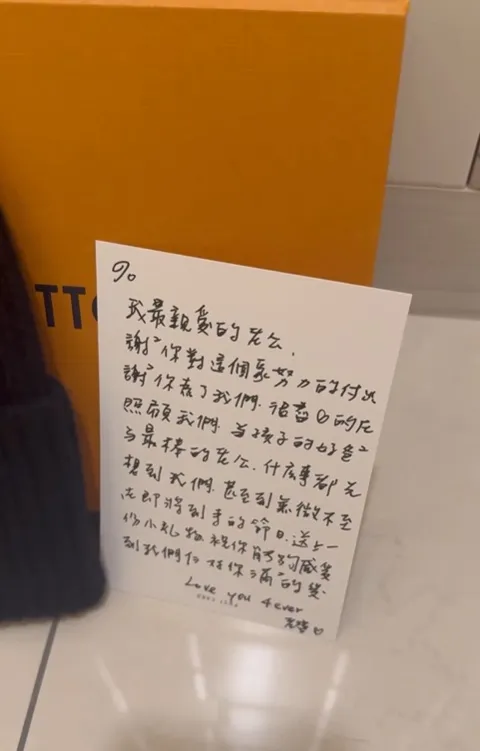 TT
To
我最親愛的老公、
謝²你對這個家努力的付出
謝²你為了我們、很用心的在
照顧我們、當孩子的好爸²
與最棒的老公、什麼事都先
想到我們、甚至到無微不至
在即將到來的節日、送上一
份小礼物祝你能夠感受
到我們 對你滿²的愛
Love you 4ever
老婆♡